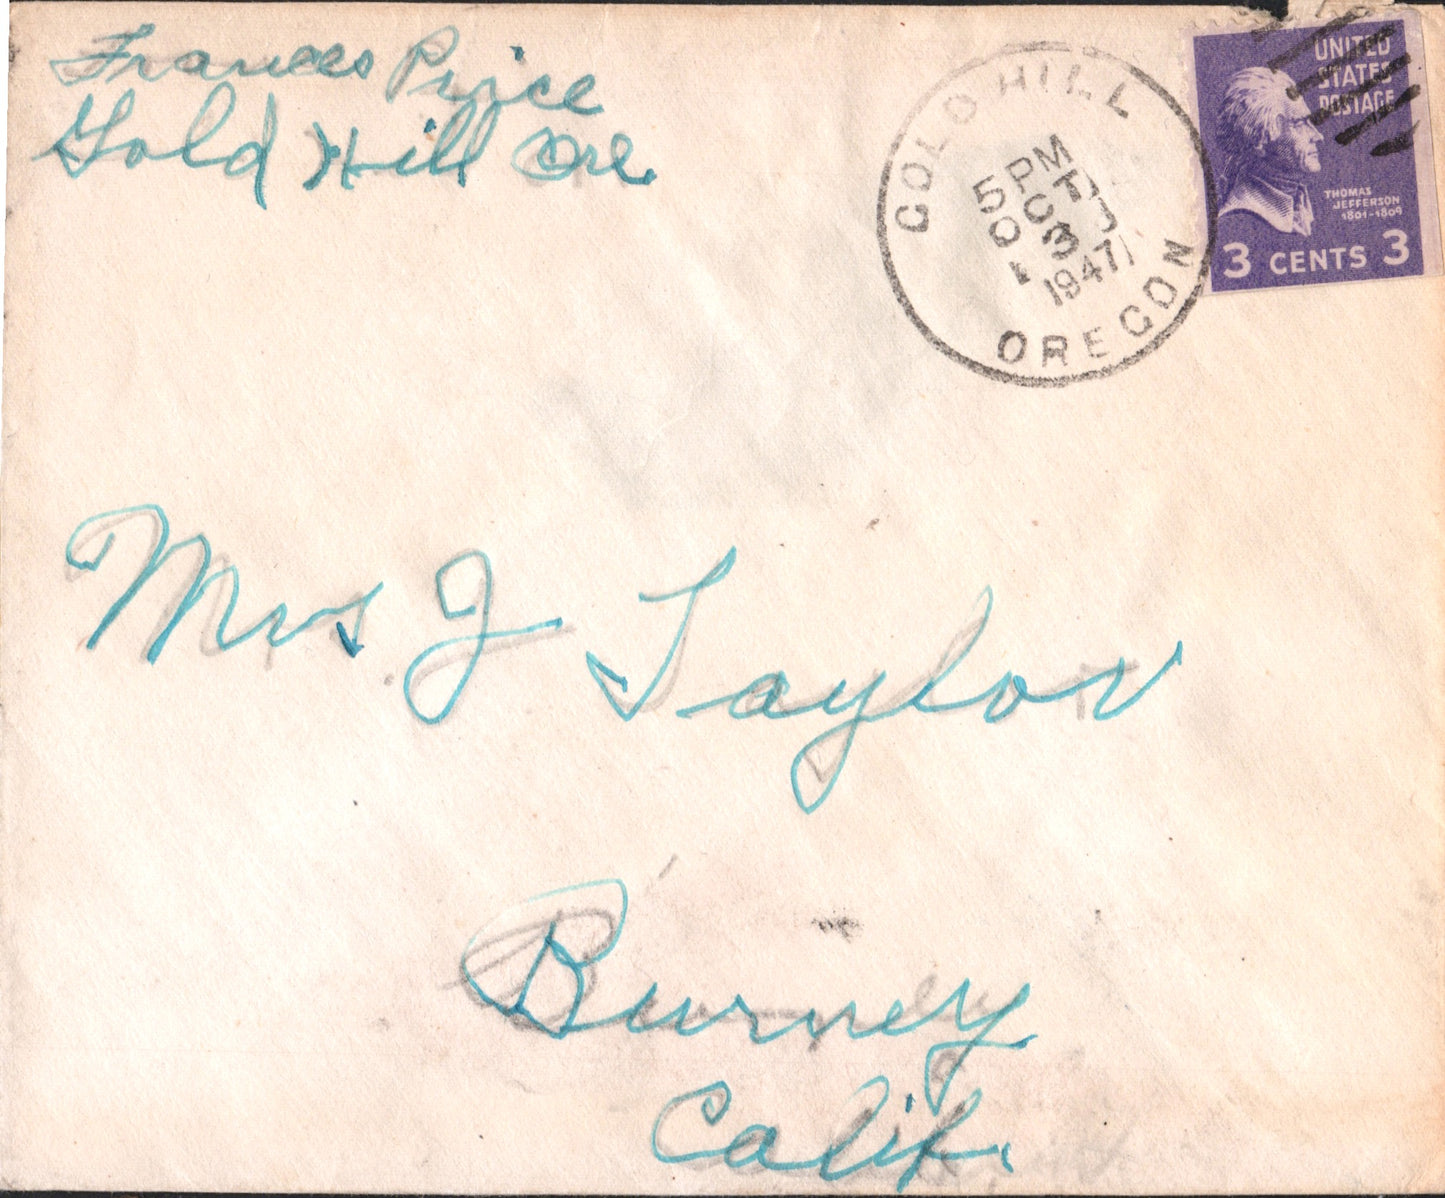 Frances Price
Gold Hill Ore
GOLD HILL
5 PM
OCT
3
1947
OREGON
UNITED
STATES
POSTAGE
THOMAS
JEFFERSON
1801-1809
3 CENTS 3
Mrs J Taylor
Burney
Calif.